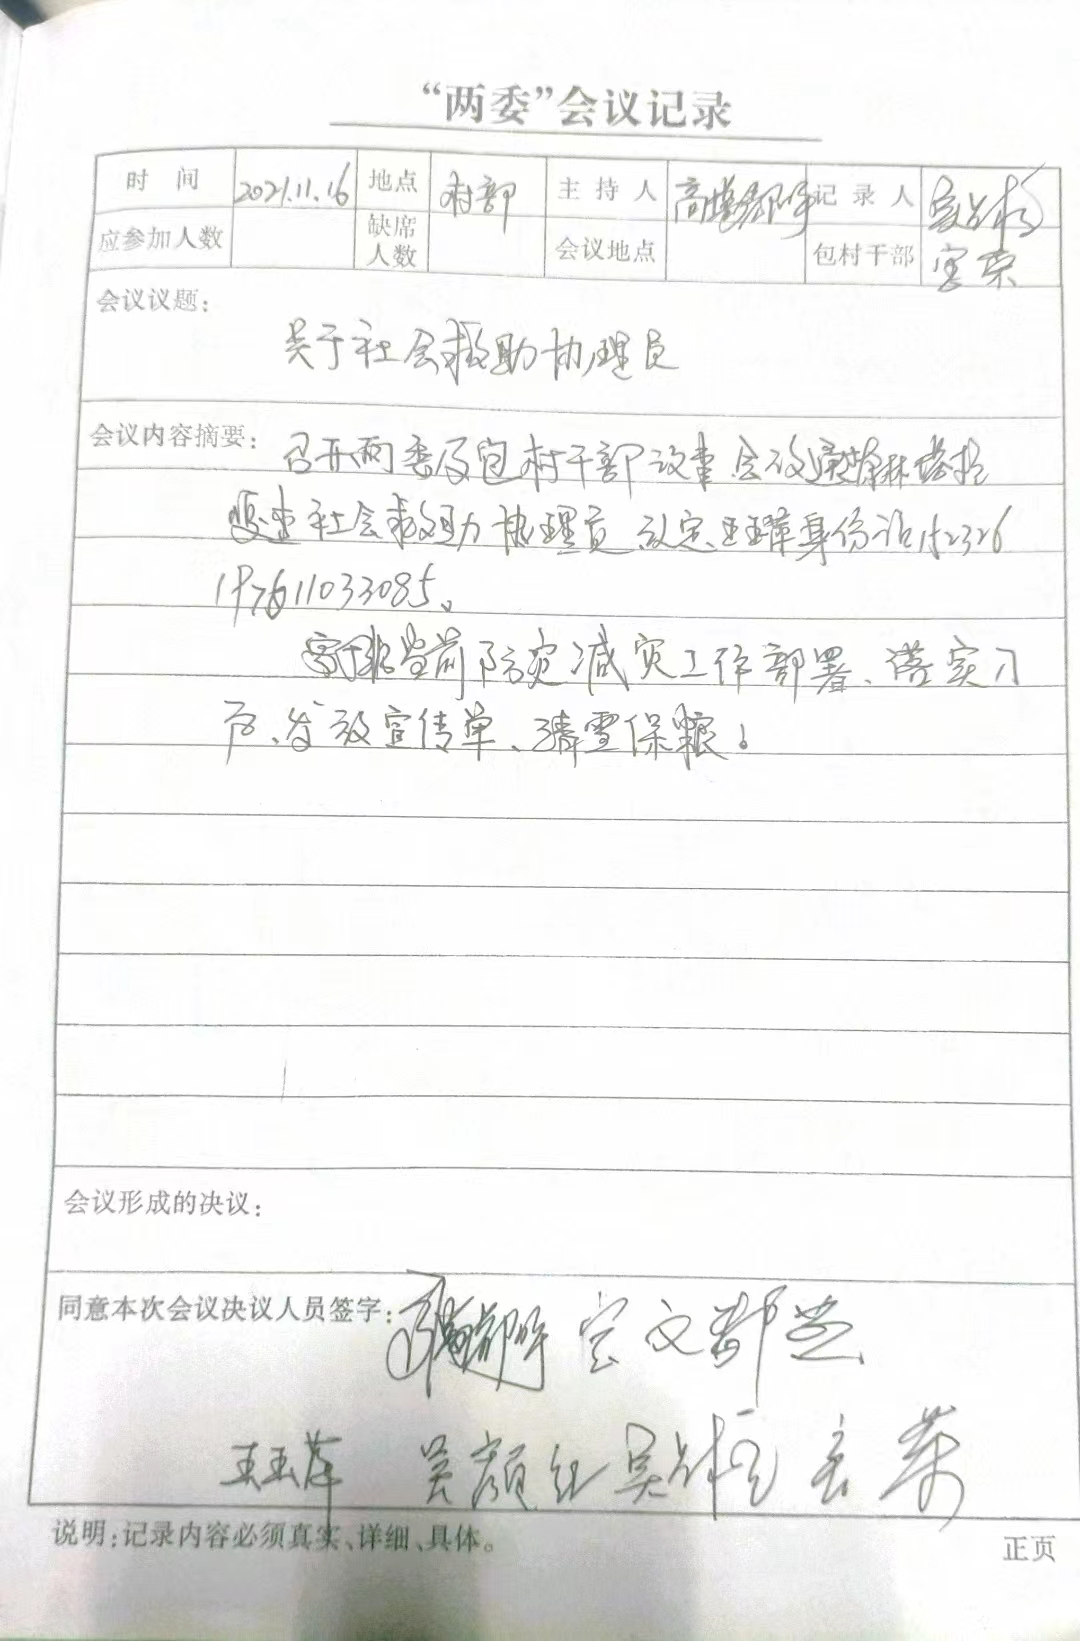 “两委”会议记录
时 间 2021.11.16 地点 村部 主 持 人 记 录 人
应参加人数 缺席人数 会议地点 包村干部
会议议题:
关于社会救助协理员
会议内容摘要: 召开两委及包村干部议事会议
社会救助协理员 议定王玉萍身份证152326
197611033085。
当前防灾减灾工作部署、落实入
户、发放宣传单、清雪保粮。
会议形成的决议:
同意本次会议决议人员签字:
王玉萍 吴颜红
说明:记录内容必须真实、详细、具体。
正页